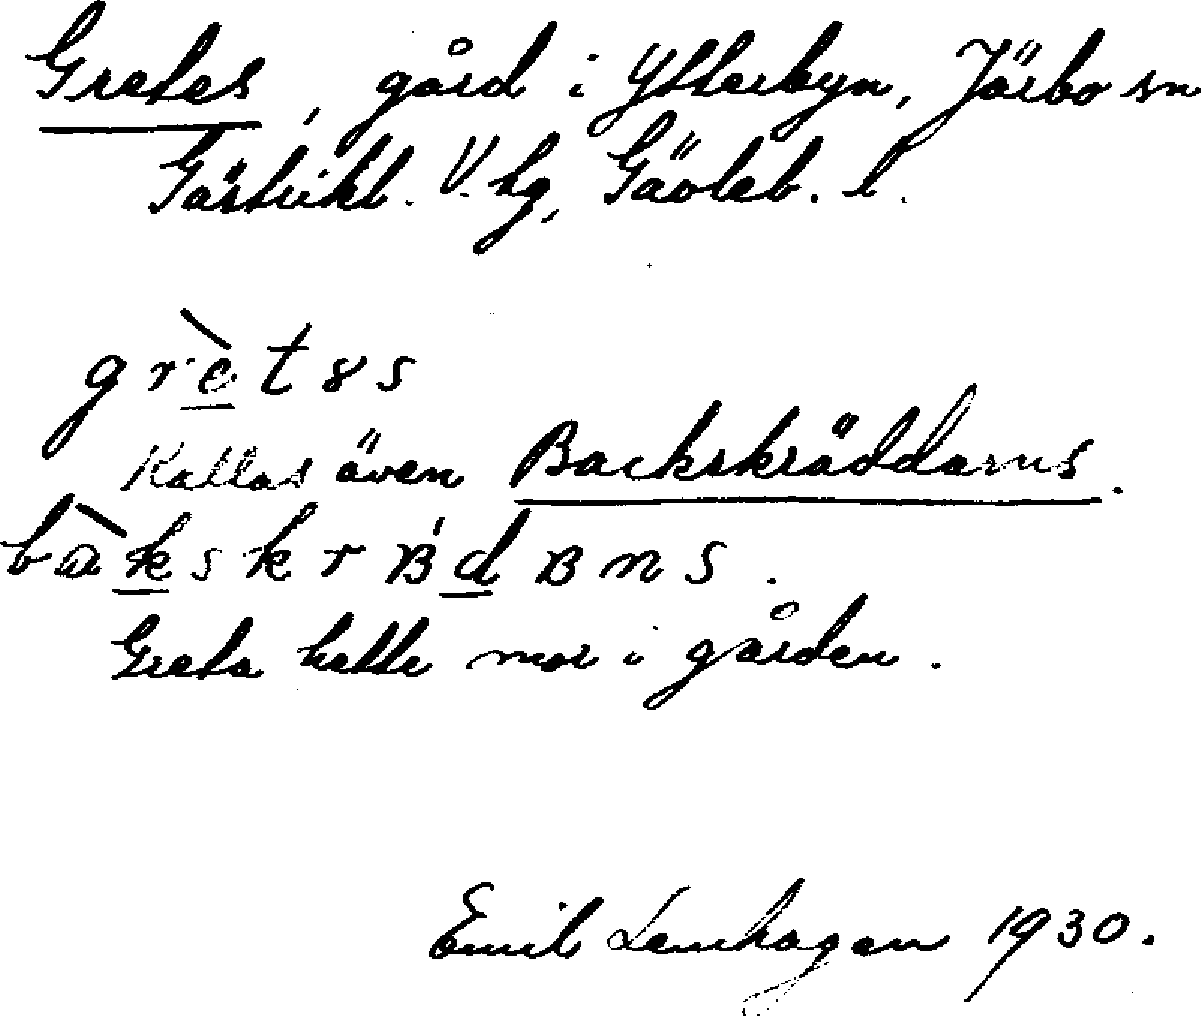 Gretes, gård i Ytterbyn, Järbo sn
Gästrikl. V. hg, Gävleb. l.
grètəs
Kallas även Backskräddarns.
bàkskrʙdʙns.
Greta hette mor i gården.
Emil Lenhagen 1930.